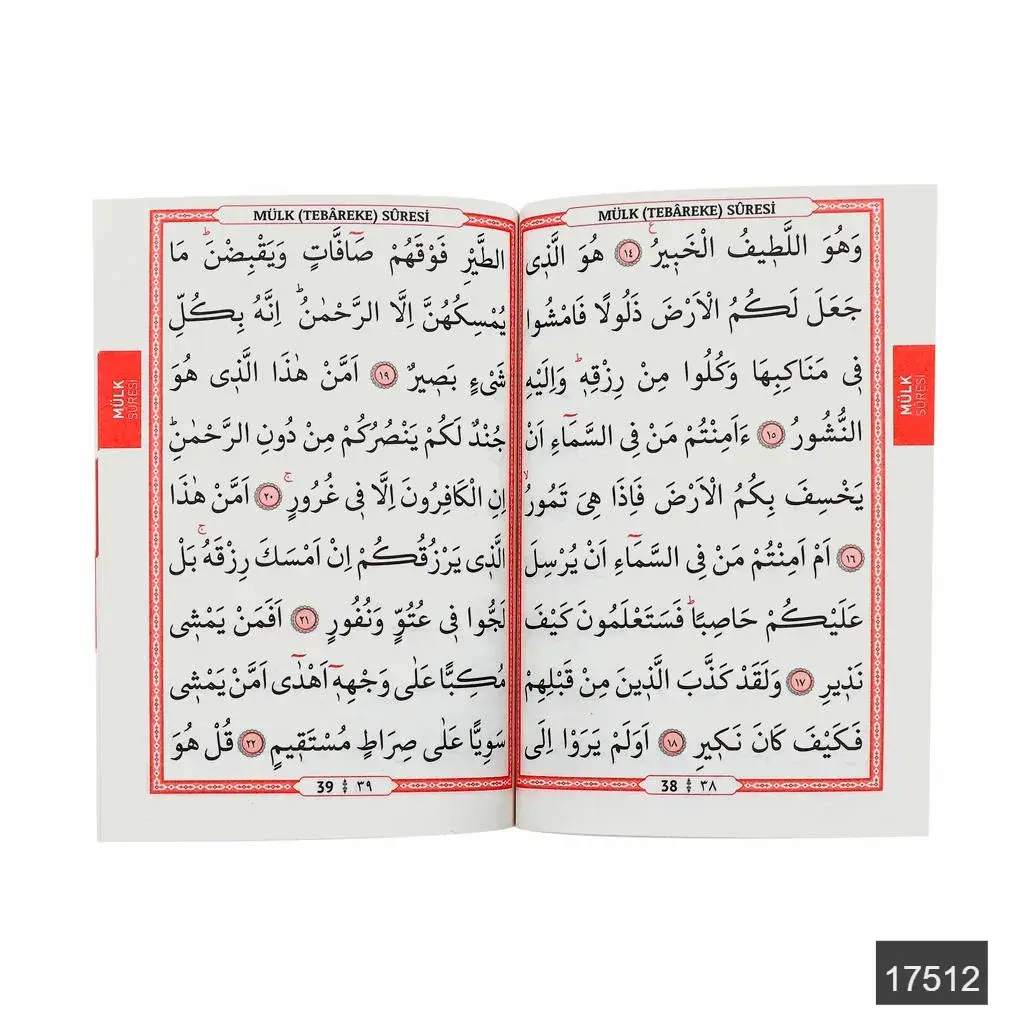 MÜLK (TEBÂREKE) SÛRESİ
وَهُوَ اللَّطٖيفُ الْخَبٖيرُ ࣖ ﴿١٤﴾ هُوَ الَّذٖى
جَعَلَ لَكُمُ الْاَرْضَ ذَلُولًا فَامْشُوا
فٖى مَنَاكِبِهَا وَكُلُوا مِنْ رِزْقِهٖؕ وَاِلَيْهِ
النُّشُورُ ﴿١٥﴾ ءَاَمِنْتُمْ مَنْ فِى السَّمَٓاءِ اَنْ
يَخْسِفَ بِكُمُ الْاَرْضَ فَاِذَا هِىَ تَمُورُۙ
﴿١٦﴾ اَمْ اَمِنْتُمْ مَنْ فِى السَّمَٓاءِ اَنْ يُرْسِلَ
عَلَيْكُمْ حَاصِبًاؕ فَسَتَعْلَمُونَ كَيْفَ
نَذٖيرِ ﴿١٧﴾ وَلَقَدْ كَذَّبَ الَّذٖينَ مِنْ قَبْلِهِمْ
فَكَيْفَ كَانَ نَكٖيرِ ﴿١٨﴾ اَوَلَمْ يَرَوْا اِلَى
38 ٣٨
MÜLK SÛRESİ
MÜLK (TEBÂREKE) SÛRESİ
الطَّيْرِ فَوْقَهُمْ صَٓافَّاتٍ وَيَقْبِضْنَؕ مَا
يُمْسِكُهُنَّ اِلَّا الرَّحْمٰنُؕ اِنَّهُ بِكُلِّ
شَىْءٍ بَصٖيرٌ ﴿١٩﴾ اَمَّنْ هٰذَا الَّذٖى هُوَ
جُنْدٌ لَكُمْ يَنْصُرُكُمْ مِنْ دُونِ الرَّحْمٰنِؕ
اِنِ الْكَافِرُونَ اِلَّا فٖى غُرُورٍۚ ﴿٢٠﴾ اَمَّنْ هٰذَا
الَّذٖى يَرْزُقُكُمْ اِنْ اَمْسَكَ رِزْقَهُۚ بَلْ
لَجُّوا فٖى عُتُوٍّ وَنُفُورٍ ﴿٢١﴾ اَفَمَنْ يَمْشٖى
مُكِبًّا عَلٰى وَجْهِهٖٓ اَهْدٰٓى اَمَّنْ يَمْشٖى
سَوِيًّا عَلٰى صِرَاطٍ مُسْتَقٖيمٍ ﴿٢٢﴾ قُلْ هُوَ
39 ٣٩
MÜLK SÛRESİ
17512